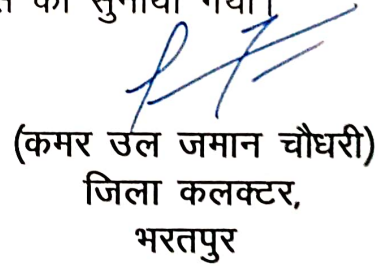 को सुनाया गया।
(कमर उल जमान चौधरी)
जिला कलक्टर,
भरतपुर